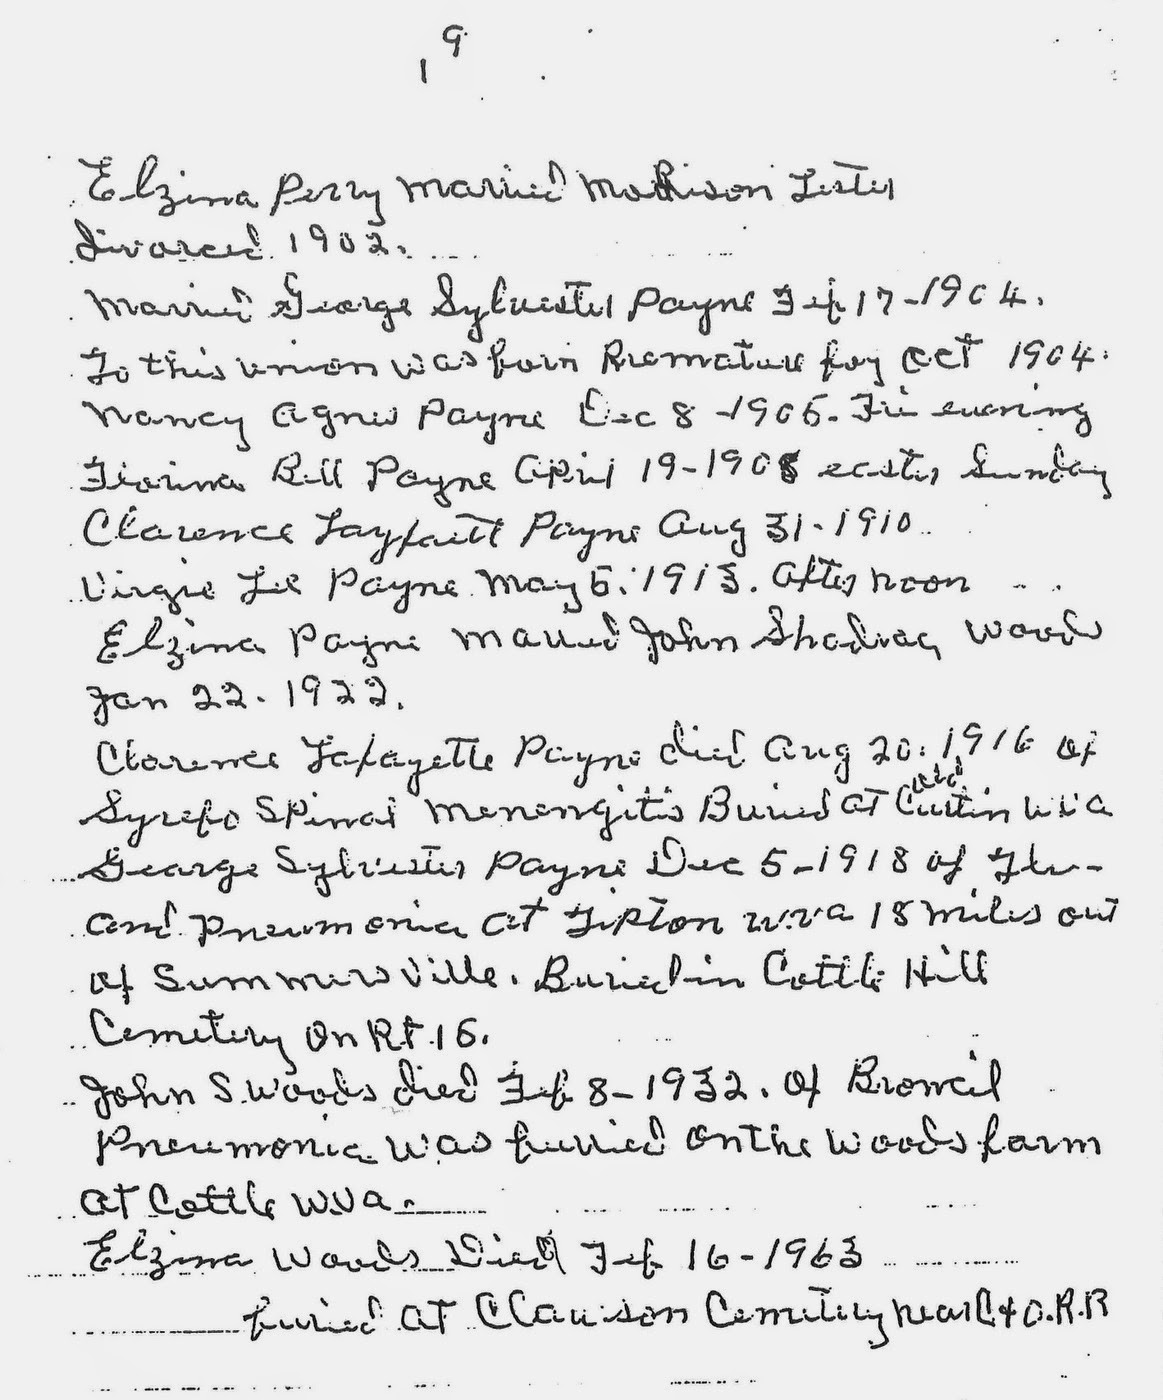 19
Elzina Perry Married Madison Lester
Divorced 1902.
Married George Sylvester Payne Feb 17-1904.
To this union was born Premature boy Oct 1904.
Nancy Agnes Payne Dec 8-1905. Fri evening
Florina Bell Payne April 19-1908 easter Sunday
Clarence Layfaett Payne Aug 31-1910
Virgie Lee Payne May 5. 1913. After noon
Elzina Payne Married John Shadrac Woods
Jan 22. 1922.
Clarence Lafayette Payne died Aug 20. 1916 of
Spinal Menengitis Buried at Old Curtin W.Va
George Sylvester Payne Dec 5-1918 of Flu-
and Pneumonia at Tipton W.Va 18 miles out
of Summersville. Buried in Cottle Hill
Cemetery on Rt. 16.
John S. Woods died Feb 8-1932. of Broncil
Pneumonia was burried on the Woods farm
at Cottle W.Va.
Elzina Woods Died Feb 16-1963
buried at Clawson Cemetery near C&O.R.R